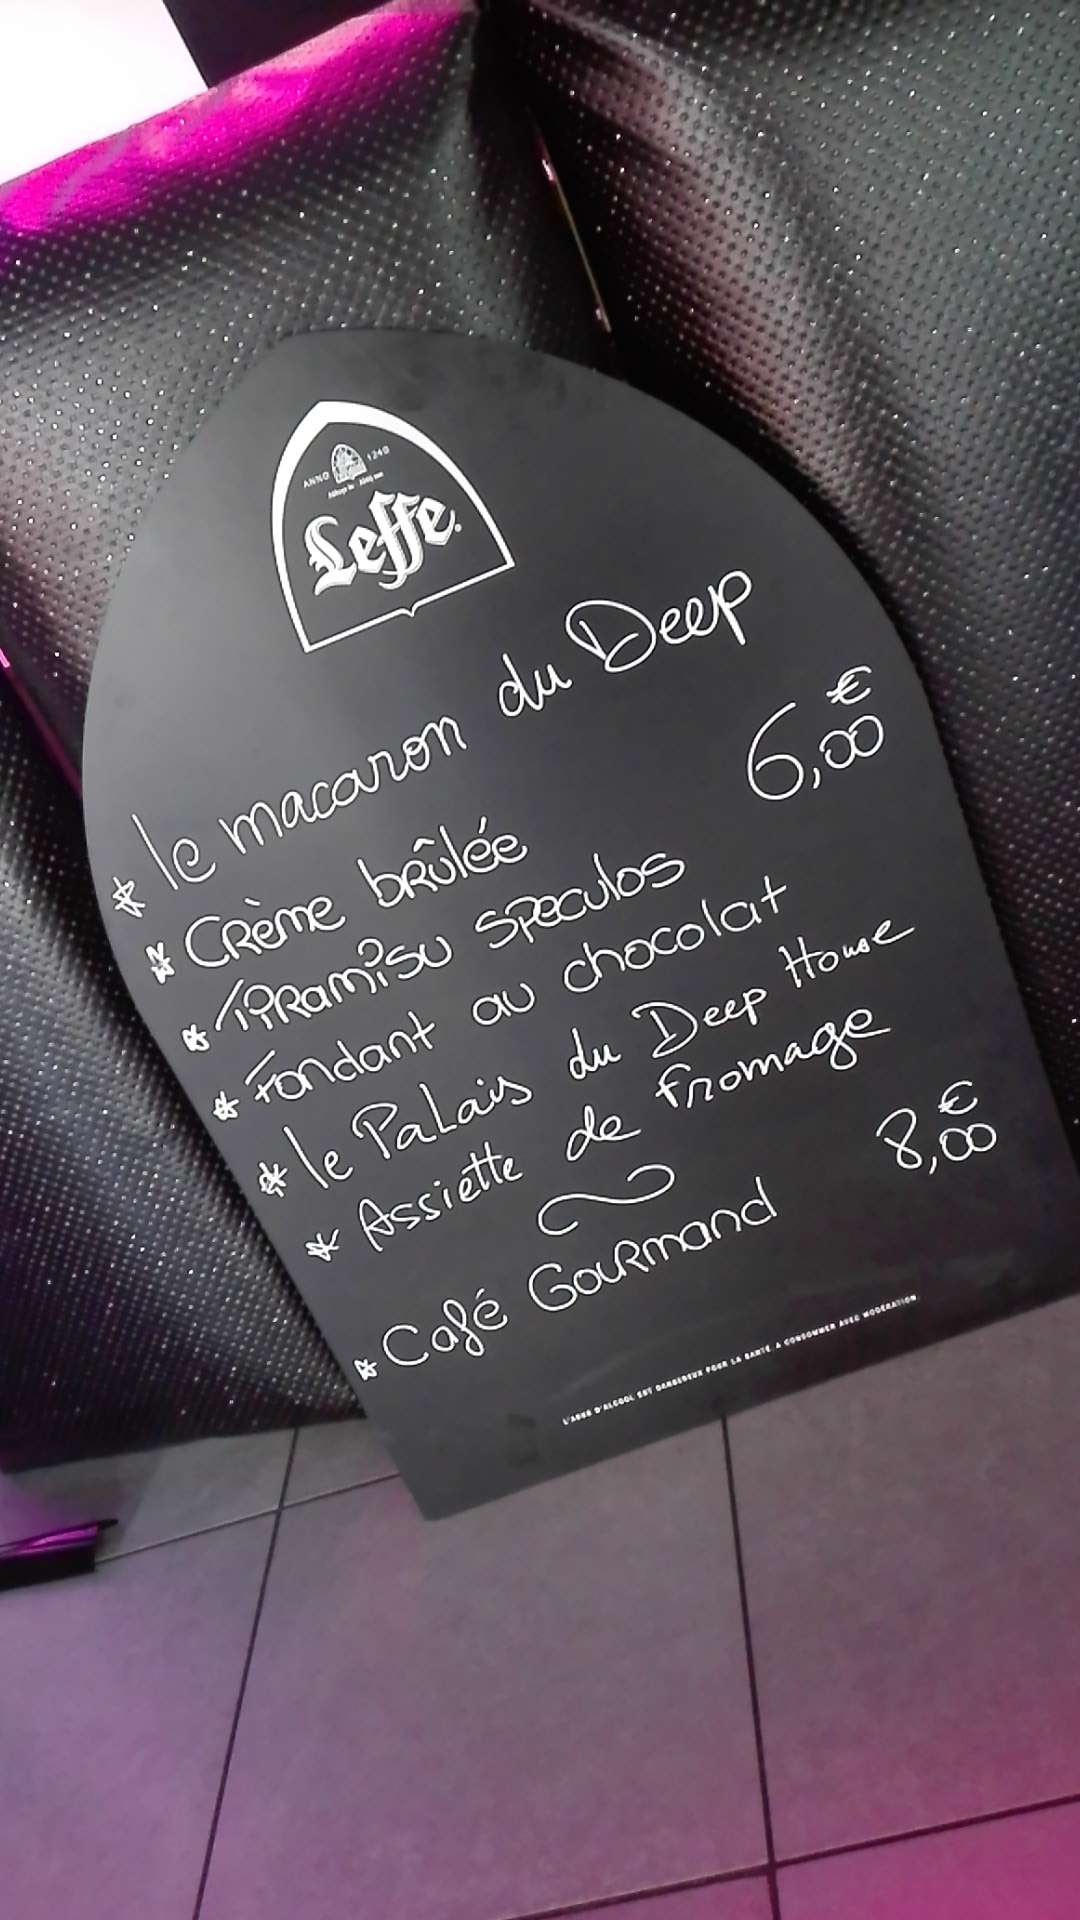 ANNO 1240
Leffe
* le macaron du Deep
6,00 €
* Crème brûlée
* Tiramisu speculos
* Fondant au chocolat
* le Palais du Deep House
* Assiette de fromage
8,00 €
* Café Gourmand
L'ABUS D'ALCOOL EST DANGEREUX POUR LA SANTÉ. A CONSOMMER AVEC MODÉRATION